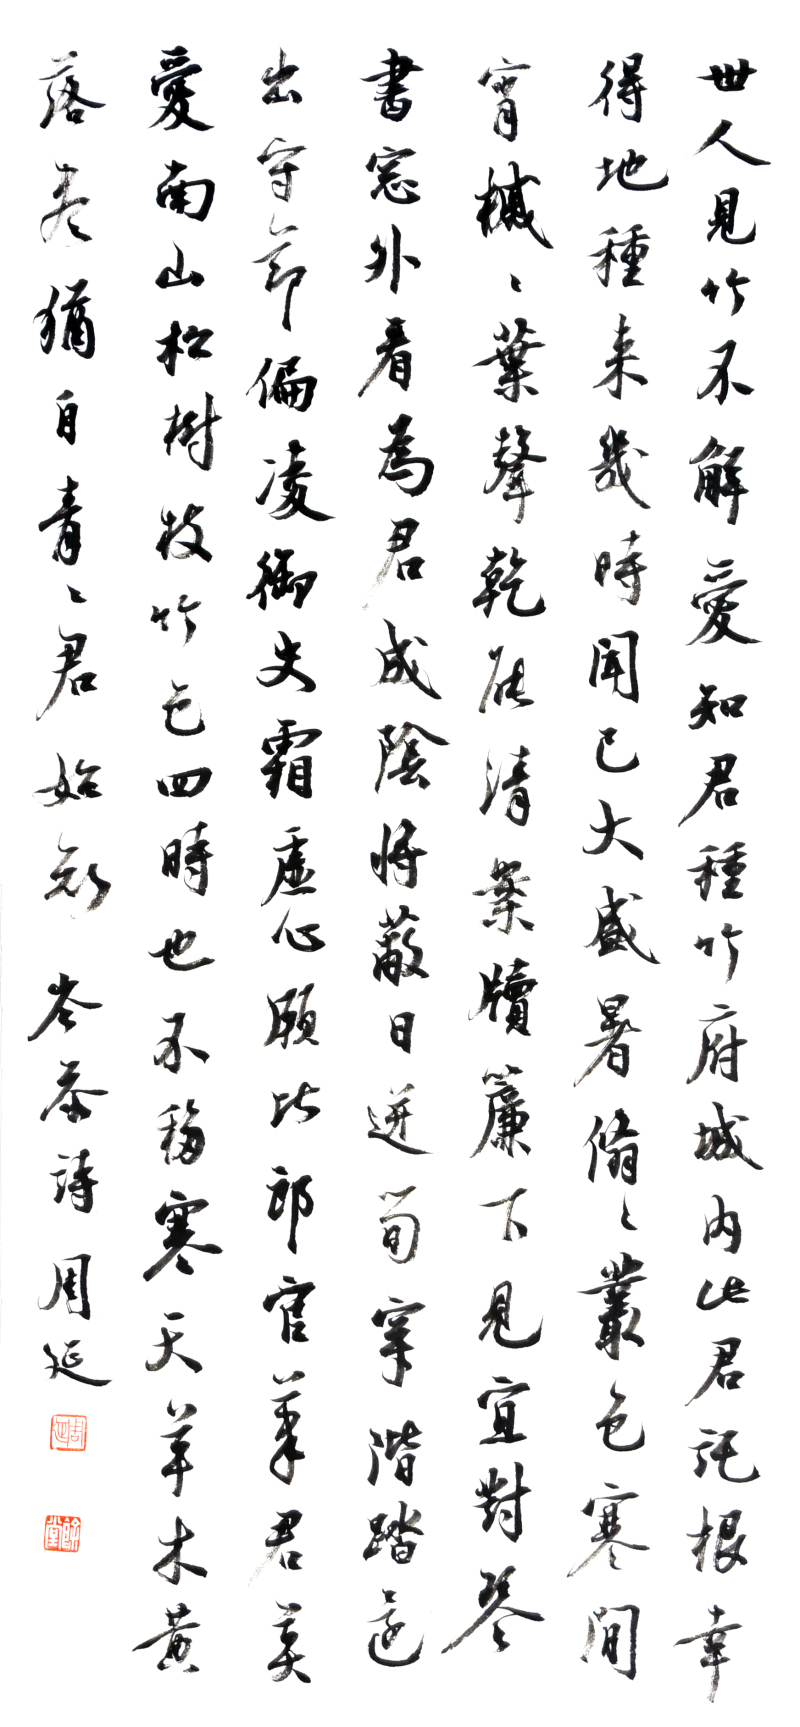 世人見竹不解愛知君種竹府城內此君託根幸
得地種来幾時聞已大盛暑翛〻叢色寒閒
宵槭〻葉聲乾能清案牘簾下見宜對琴
書窓外看為君成陰將蔽日迸筍穿階踏還
出守節偏凌御史霜虛心願比郎官筆君莫
愛南山松樹枝竹色四時也不移寒天草木黃
落盡猶自青〻君始知 岑參詩 周延
周延